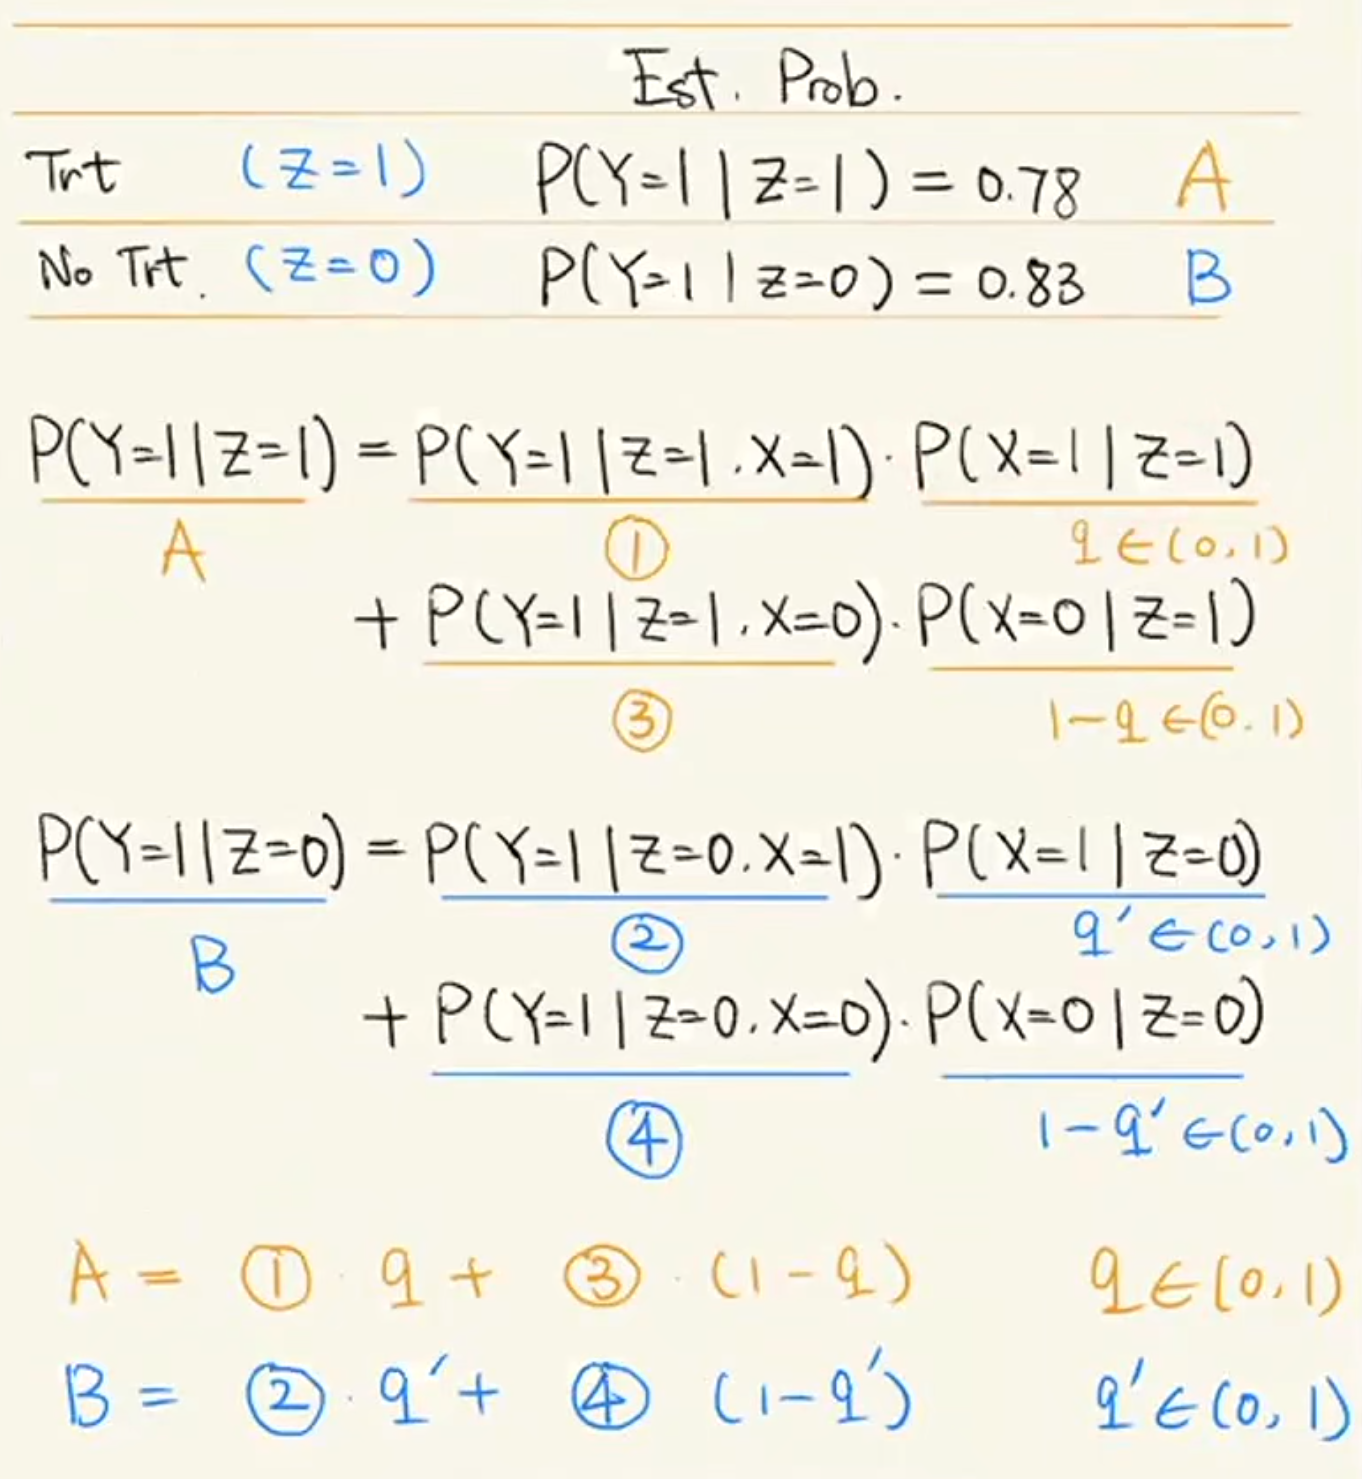 Est. Prob.
Trt (Z=1) P(Y=1|Z=1) = 0.78 A
No Trt. (Z=0) P(Y=1|Z=0) = 0.83 B
P(Y=1|Z=1) = P(Y=1|Z=1.X=1)·P(X=1|Z=1)
A ① q∈(0,1)
+ P(Y=1|Z=1.X=0)·P(X=0|Z=1)
③ 1-q∈(0.1)
P(Y=1|Z=0) = P(Y=1|Z=0.X=1)·P(X=1|Z=0)
B ② q'∈(0,1)
+ P(Y=1|Z=0.X=0)·P(X=0|Z=0)
④ 1-q'∈(0,1)
A = ①·q + ③·(1-q) q∈(0,1)
B = ②·q' + ④ (1-q') q'∈(0,1)